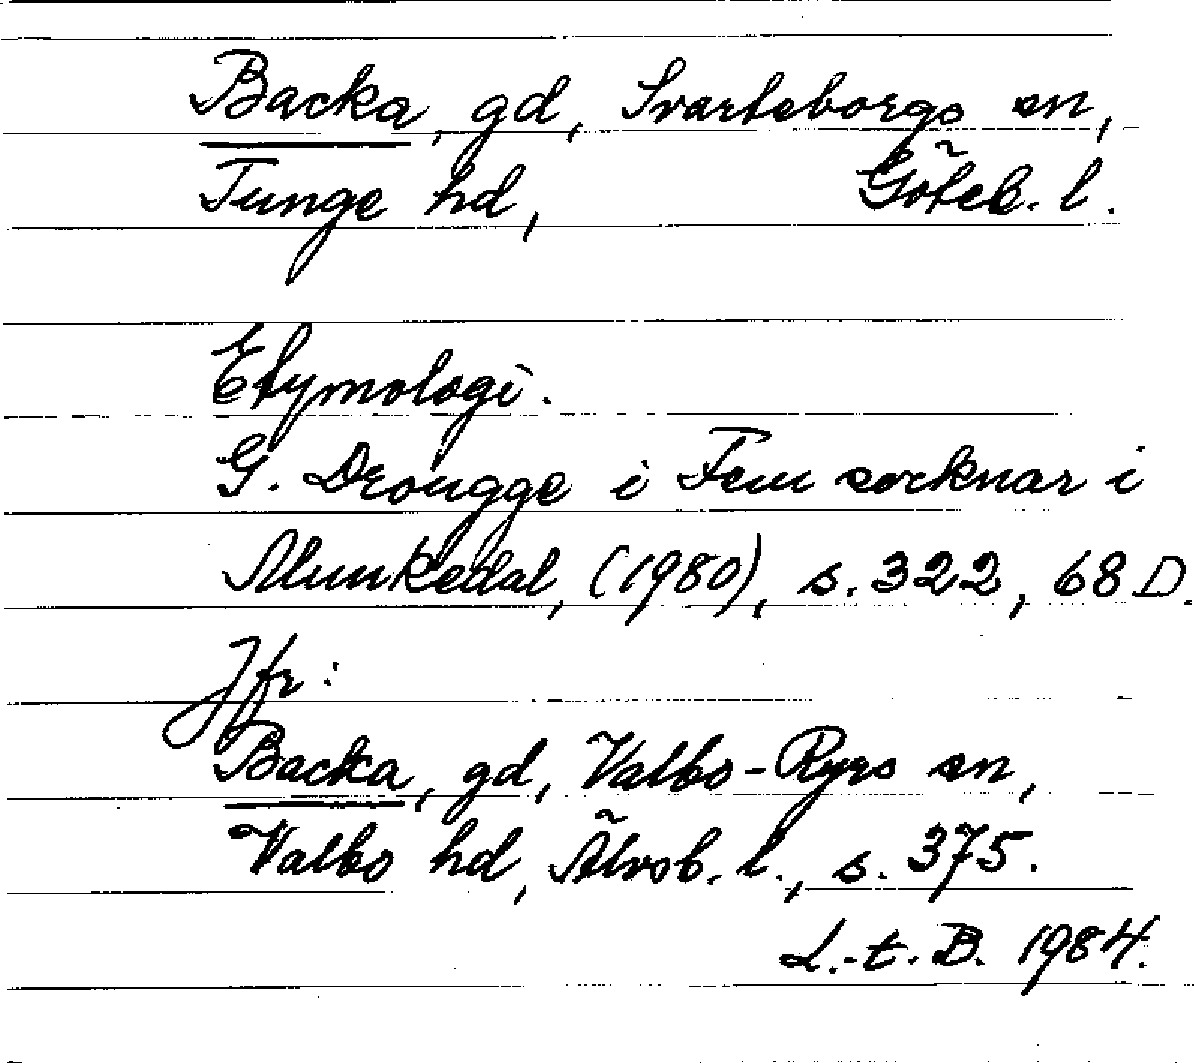 Backa, gd, Svarteborgs sn,
Tunge hd, Göteb. l.
Etymologi.
G. Drougge i Fem socknar i
Munkedal, (1980), s. 322, 68 D.
Jfr:
Backa, gd, Valbo-Ryrs sn,
Valbo hd, Älvsb. l., s. 375.
L.-t. B. 1984.